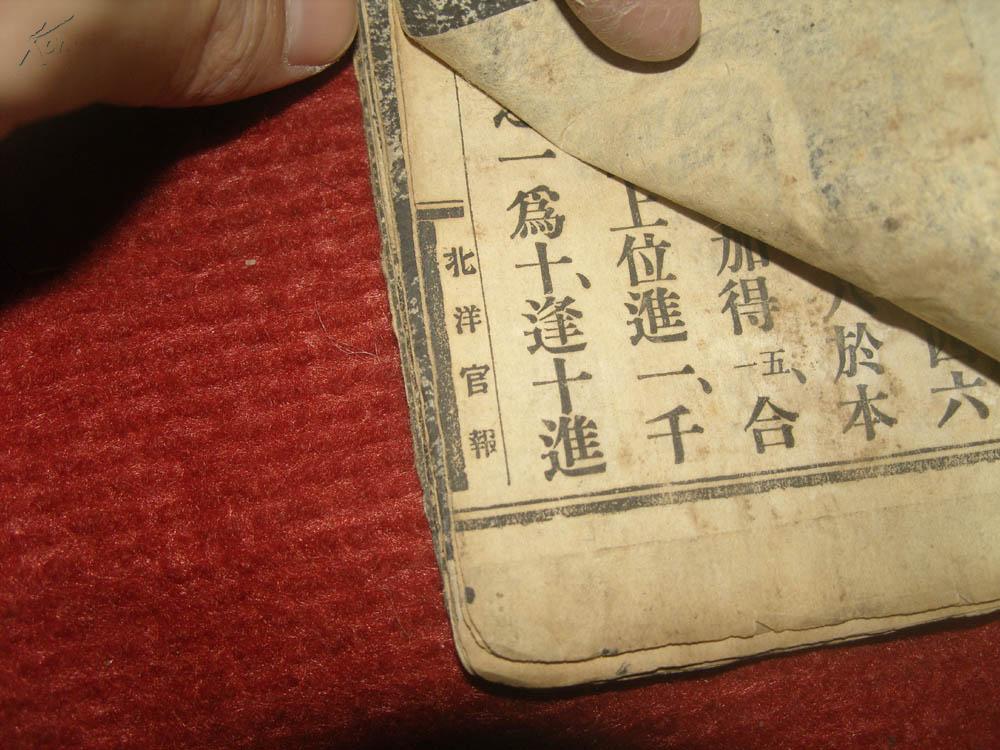 四六
於本
加得一五、合
上位進一、千
一爲十、逢十進
北洋官報